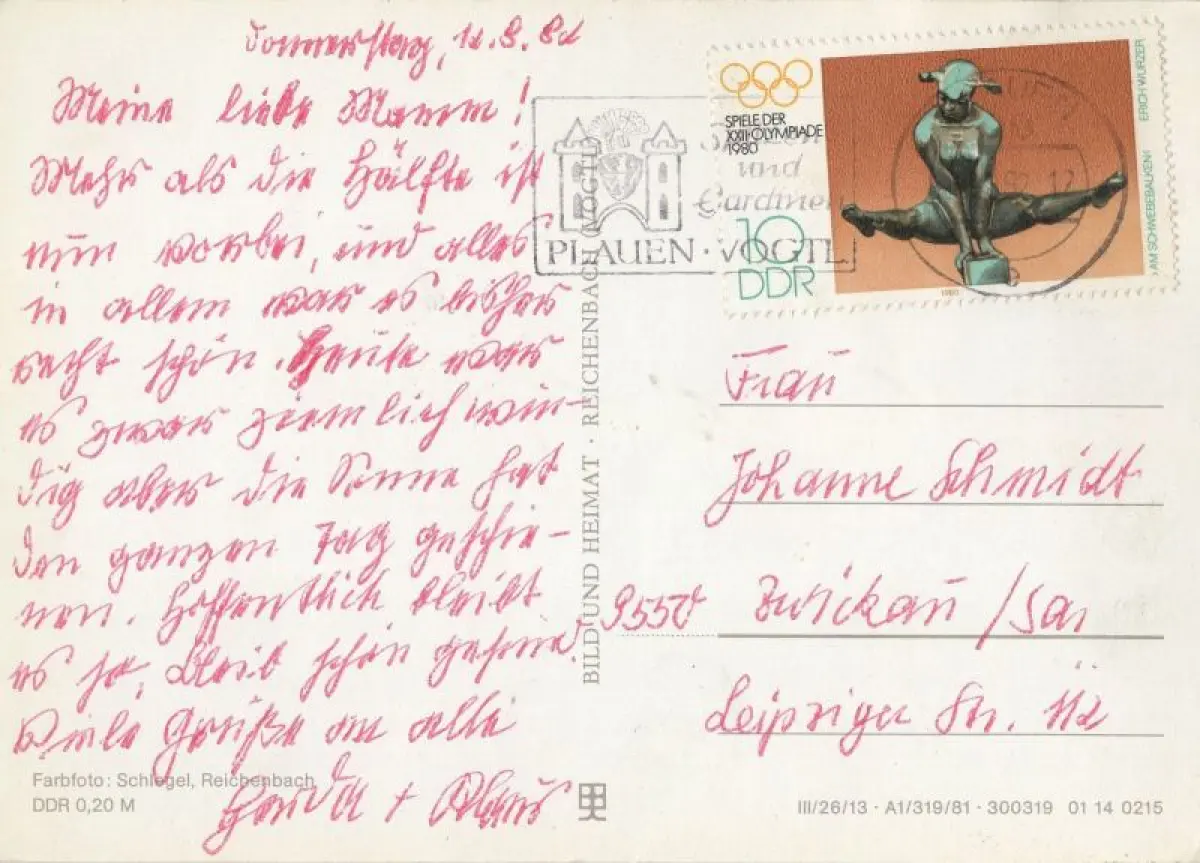 Donnerstag, 12.8.82
Meine liebe Mamm!
Mehr als die Hälfte ist
nun vorbei, und alles
in allem war es bisher
recht schön. Heute war
es zwar ziemlich win-
dig aber die Sonne hat
den ganzen Tag geschie-
nen. Hoffentlich bleibt
es so. Bleib schön gesund.
Viele Grüße an alle
Gerda + Klaus
Farbfoto: Schlegel, Reichenbach
DDR 0,20 M
BILD UND HEIMAT · REICHENBACH (VOGTL)
und
Gardinen
PLAUEN · VOGTL.
SPIELE DER
XXII. OLYMPIADE
1980
10
DDR
ERICH WURZER
„AM SCHWEBEBALKEN“
1980
Frau
Johanne Schmidt
9550 Zwickau / Sa.
Leipziger Str. 112
III/26/13 · A1/319/81 · 300319 01 14 0215